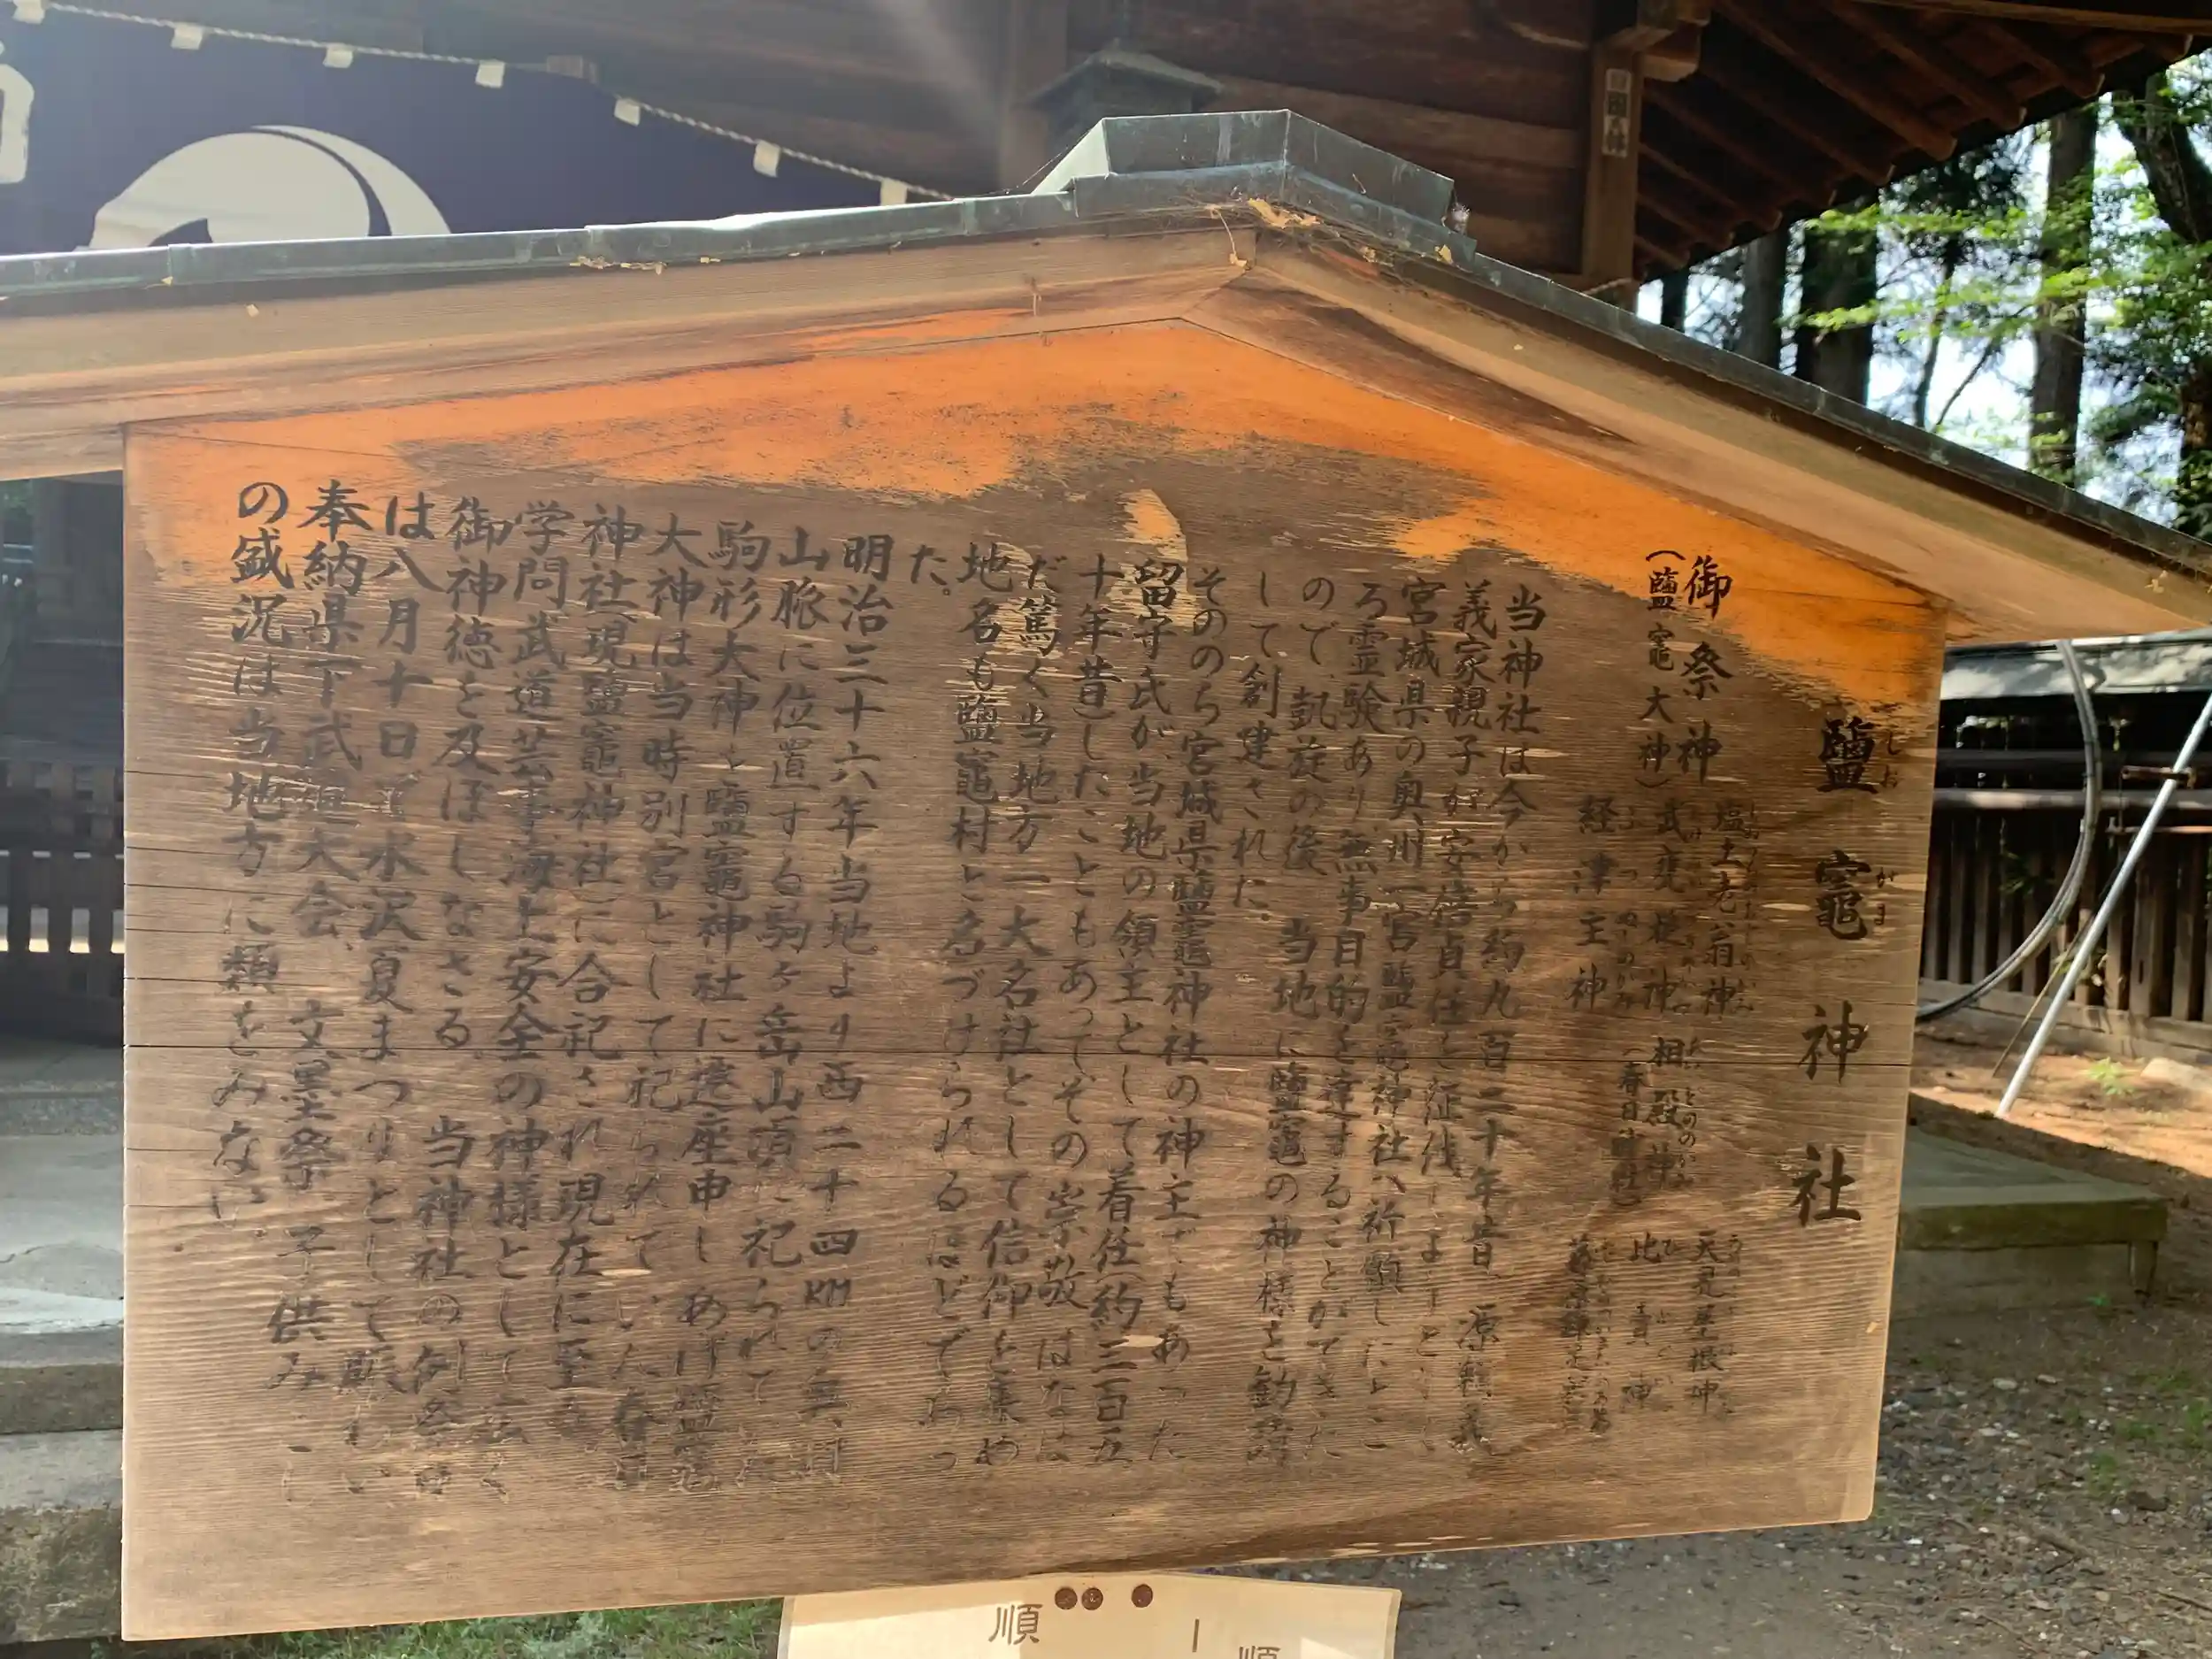 鹽竈神社
しお
がま
御祭神
(鹽竈大神)
塩土老翁神
武甕槌神
経津主神
相殿神
(春日神社)
天児屋根神
比賣神
当神社は今から約九百二十年昔、源頼義
義家親子が安倍貞任を征伐
宮城県の奥州一宮鹽竈神社へ祈願したとこ
ろ霊験あり、無事目的を達することができた
ので、凱旋の後、当地に鹽竈の神様を勧請
して創建された。
そののち宮城県鹽竈神社の神主でもあった
留守氏が、当地の領主として着任(約三百五
十年昔)したこともあってその崇敬はなは
だ篤く当地方一大名社として信仰を集め
地名も鹽竈村と名づけられるほどであっ
た。
明治三十六年当地より西二十四KMの奥羽
山脈に位置する駒ヶ岳山頂に祀られていた
駒形大神を鹽竈神社に遷座申しあげ鹽竈
大神は当時別宮として祀られていた春日
神社(現鹽竈神社)に合祀され現在に至る
学問武道芸事海上安全の神様として広く
御神徳を及ぼしなさる。当神社の例祭日
は八月十日で水沢夏まつりとして賑わい
奉納県下武道大会、文墨祭、子供み
の盛況は当地方に類をみない。
順